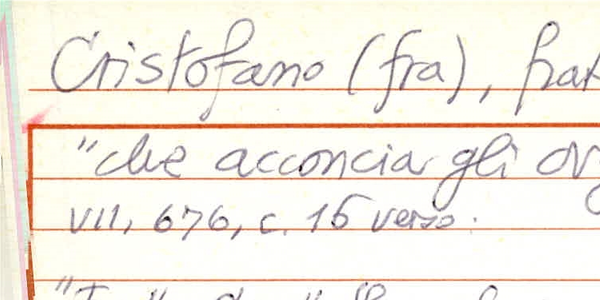 Cristofano (fra), frat
"che acconcia gli
VII, 676, c. 16 verso.